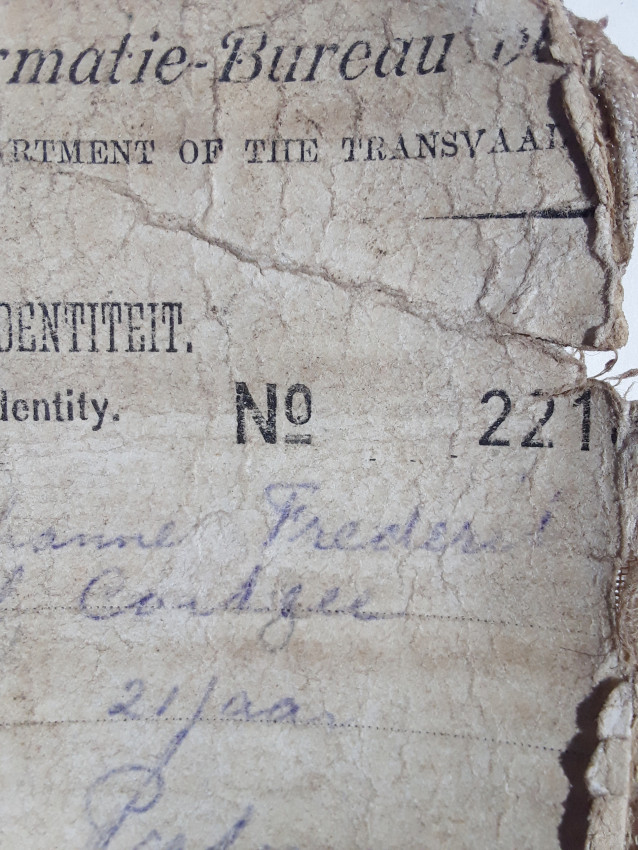 rmatie-Bureau
ARTMENT OF THE TRANSVAAL
DENTITEIT.
dentity. No 221
hannes Frederi
Coetzee
21 jaar